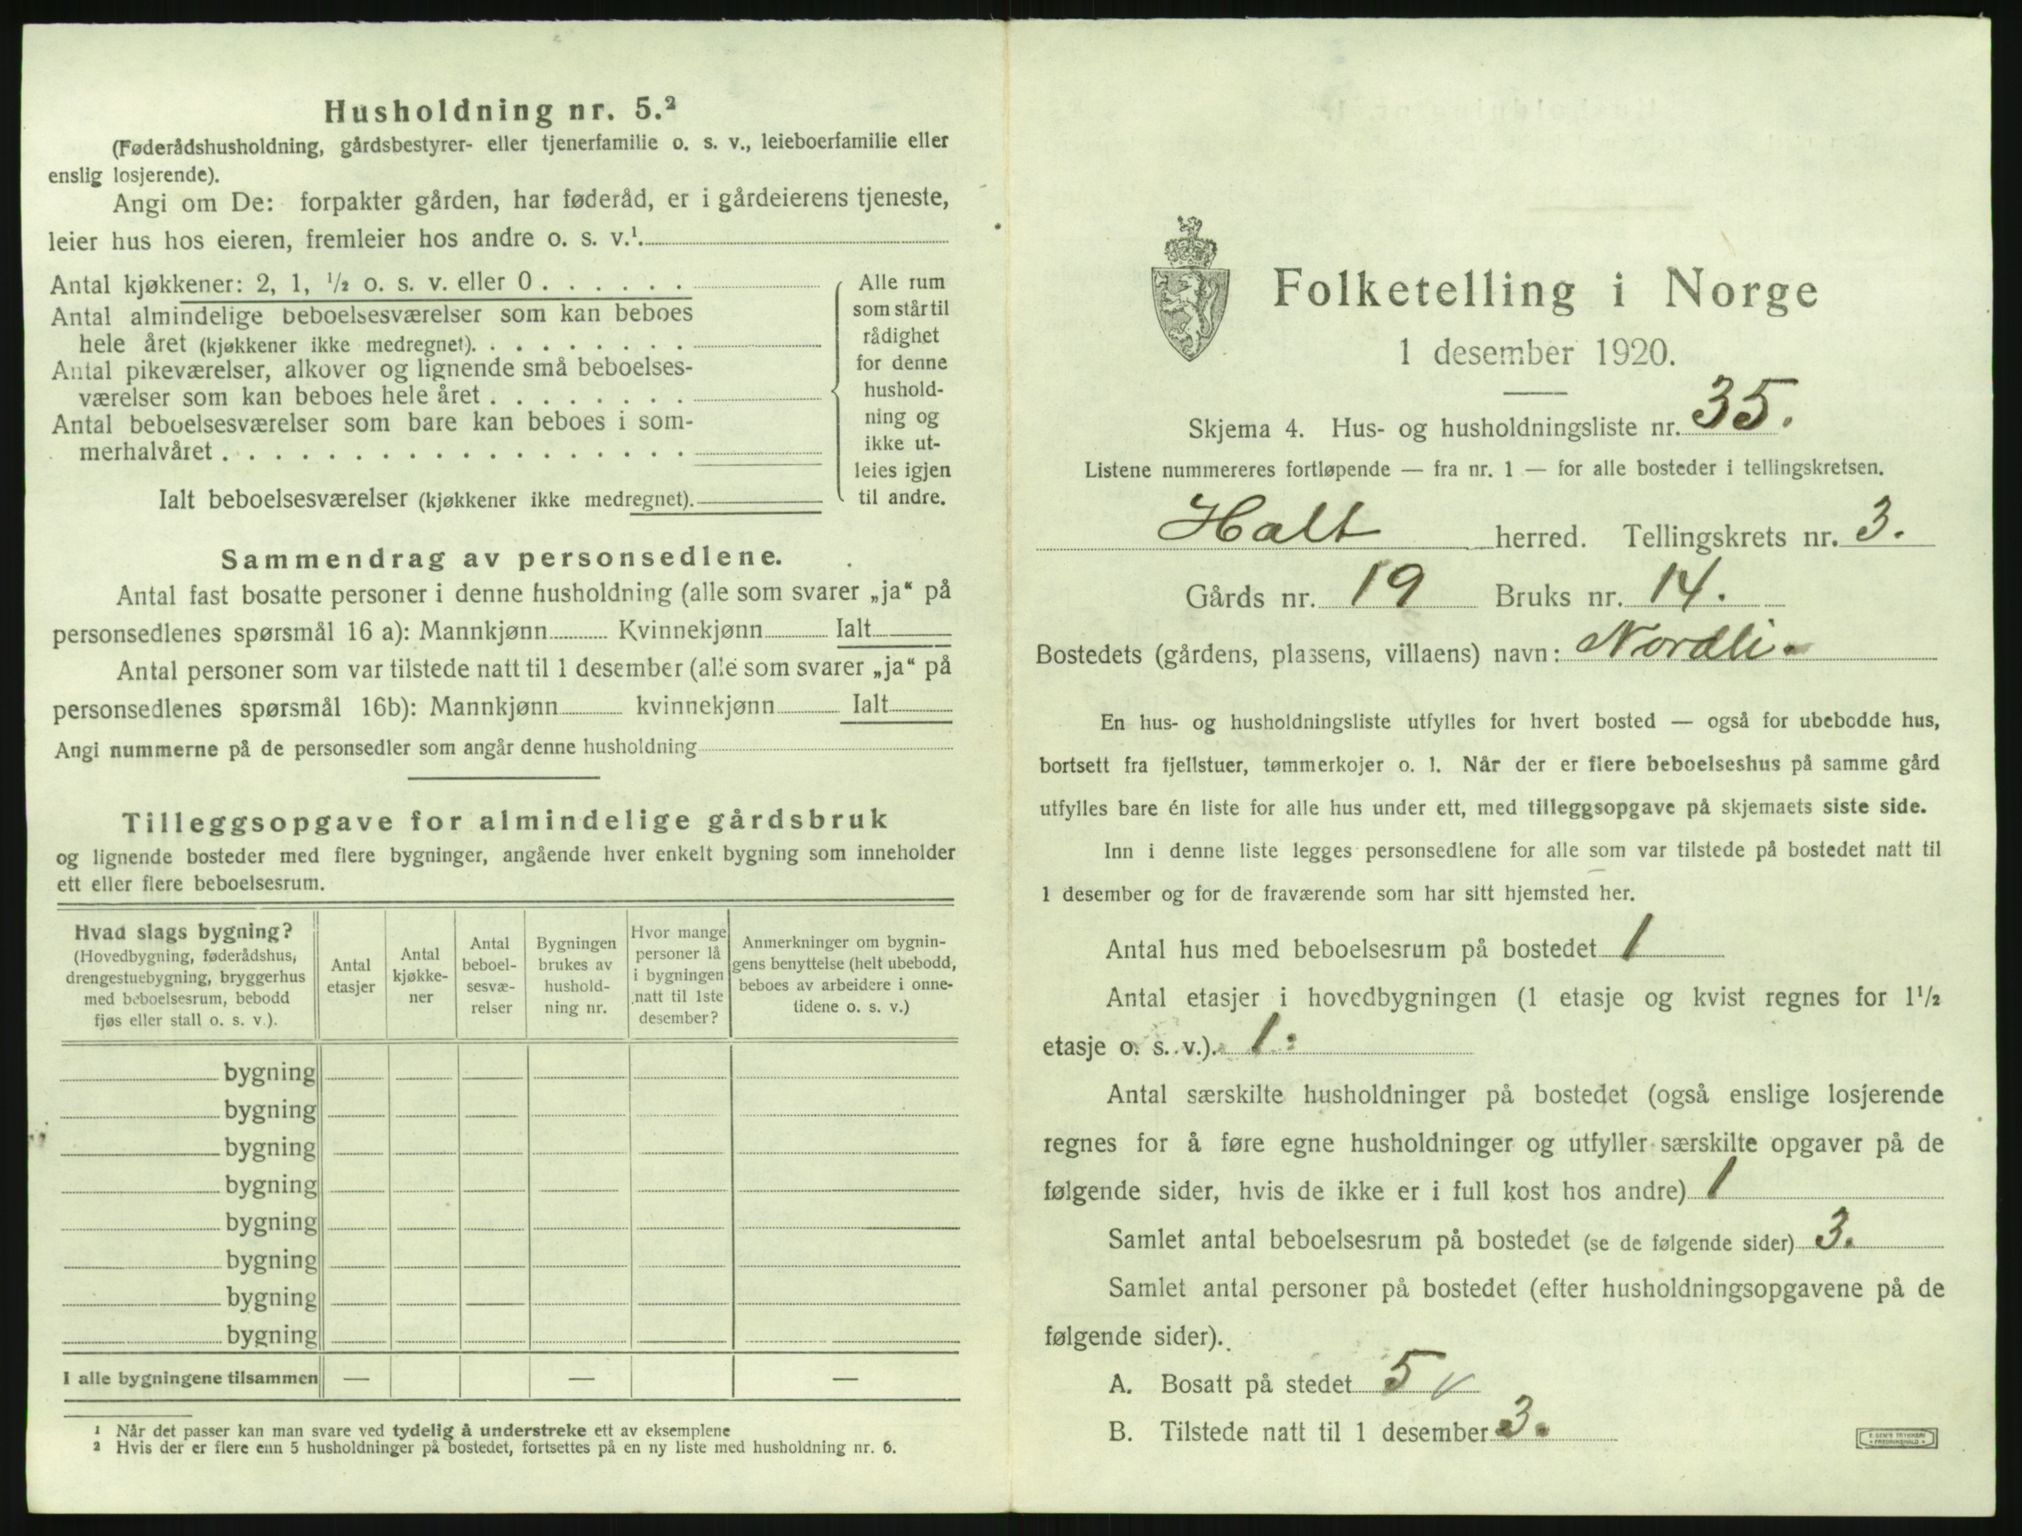 Husholdning nr. 5.²
(Føderådshusholdning, gårdsbestyrer- eller tjenerfamilie o. s. v., leieboerfamilie eller
enslig losjerende).
Angi om De: forpakter gården, har føderåd, er i gårdeierens tjeneste,
leier hus hos eieren, fremleier hos andre o. s. v.¹
Antal kjøkkener: 2, 1, ½ o. s. v. eller 0 . . . . . .
Antal almindelige beboelsesværelser som kan beboes
hele året (kjøkkener ikke medregnet). . . . . . . . .
Antal pikeværelser, alkover og lignende små beboelses-
værelser som kan beboes hele året . . . . . . . .
Antal beboelsesværelser som bare kan beboes i som-
merhalvåret . . . . . . . . . . . . . . . . . .
Ialt beboelsesværelser (kjøkkener ikke medregnet).
Alle rum
som står til
rådighet
for denne
hushold-
ning og
ikke ut-
leies igjen
til andre.
Sammendrag av personsedlene.
Antal fast bosatte personer i denne husholdning (alle som svarer „ja“ på
personsedlenes spørsmål 16 a): Mannkjønn Kvinnekjønn Ialt
Antal personer som var tilstede natt til 1 desember (alle som svarer „ja“ på
personsedlenes spørsmål 16b): Mannkjønn kvinnekjønn Ialt
Angi nummerne på de personsedler som angår denne husholdning
Tilleggsopgave for almindelige gårdsbruk
og lignende bosteder med flere bygninger, angående hver enkelt bygning som inneholder
ett eller flere beboelsesrum.
Hvad slags bygning?
(Hovedbygning, føderådshus,
drengestuebygning, bryggerhus
med beboelsesrum, bebodd
fjøs eller stall o. s. v.).
Antal
etasjer
Antal
kjøkke-
ner
Antal
beboel-
sesvæ-
relser
Bygningen
brukes av
hushold-
ning nr.
Hvor mange
personer lå
i bygningen
natt til 1ste
desember?
Anmerkninger om bygnin-
gens benyttelse (helt ubebodd,
beboes av arbeidere i onne-
tidene o. s. v.)
bygning
bygning
bygning
bygning
bygning
bygning
bygning
bygning
I alle bygningene tilsammen — — —
¹ Når det passer kan man svare ved tydelig å understreke ett av eksemplene
² Hvis der er flere enn 5 husholdninger på bostedet, fortsettes på en ny liste med husholdning nr. 6.
Folketelling i Norge
1 desember 1920.
Skjema 4. Hus- og husholdningsliste nr. 35.
Listene nummereres fortløpende — fra nr. 1 — for alle bosteder i tellingskretsen.
Holt herred. Tellingskrets nr. 3.
Gårds nr. 19 Bruks nr. 14.
Bostedets (gårdens, plassens, villaens) navn: Nordli.
En hus- og husholdningsliste utfylles for hvert bosted — også for ubebodde hus,
bortsett fra fjellstuer, tømmerkojer o. l. Når der er flere beboelseshus på samme gård
utfylles bare én liste for alle hus under ett, med tilleggsopgave på skjemaets siste side.
Inn i denne liste legges personsedlene for alle som var tilstede på bostedet natt til
1 desember og for de fraværende som har sitt hjemsted her.
Antal hus med beboelsesrum på bostedet 1
Antal etasjer i hovedbygningen (1 etasje og kvist regnes for 1½
etasje o. s. v.). 1.
Antal særskilte husholdninger på bostedet (også enslige losjerende
regnes for å føre egne husholdninger og utfyller særskilte opgaver på de
følgende sider, hvis de ikke er i full kost hos andre) 1
Samlet antal beboelsesrum på bostedet (se de følgende sider) 3.
Samlet antal personer på bostedet (efter husholdningsopgavene på de
følgende sider).
A. Bosatt på stedet 5 √
B. Tilstede natt til 1 desember 3.